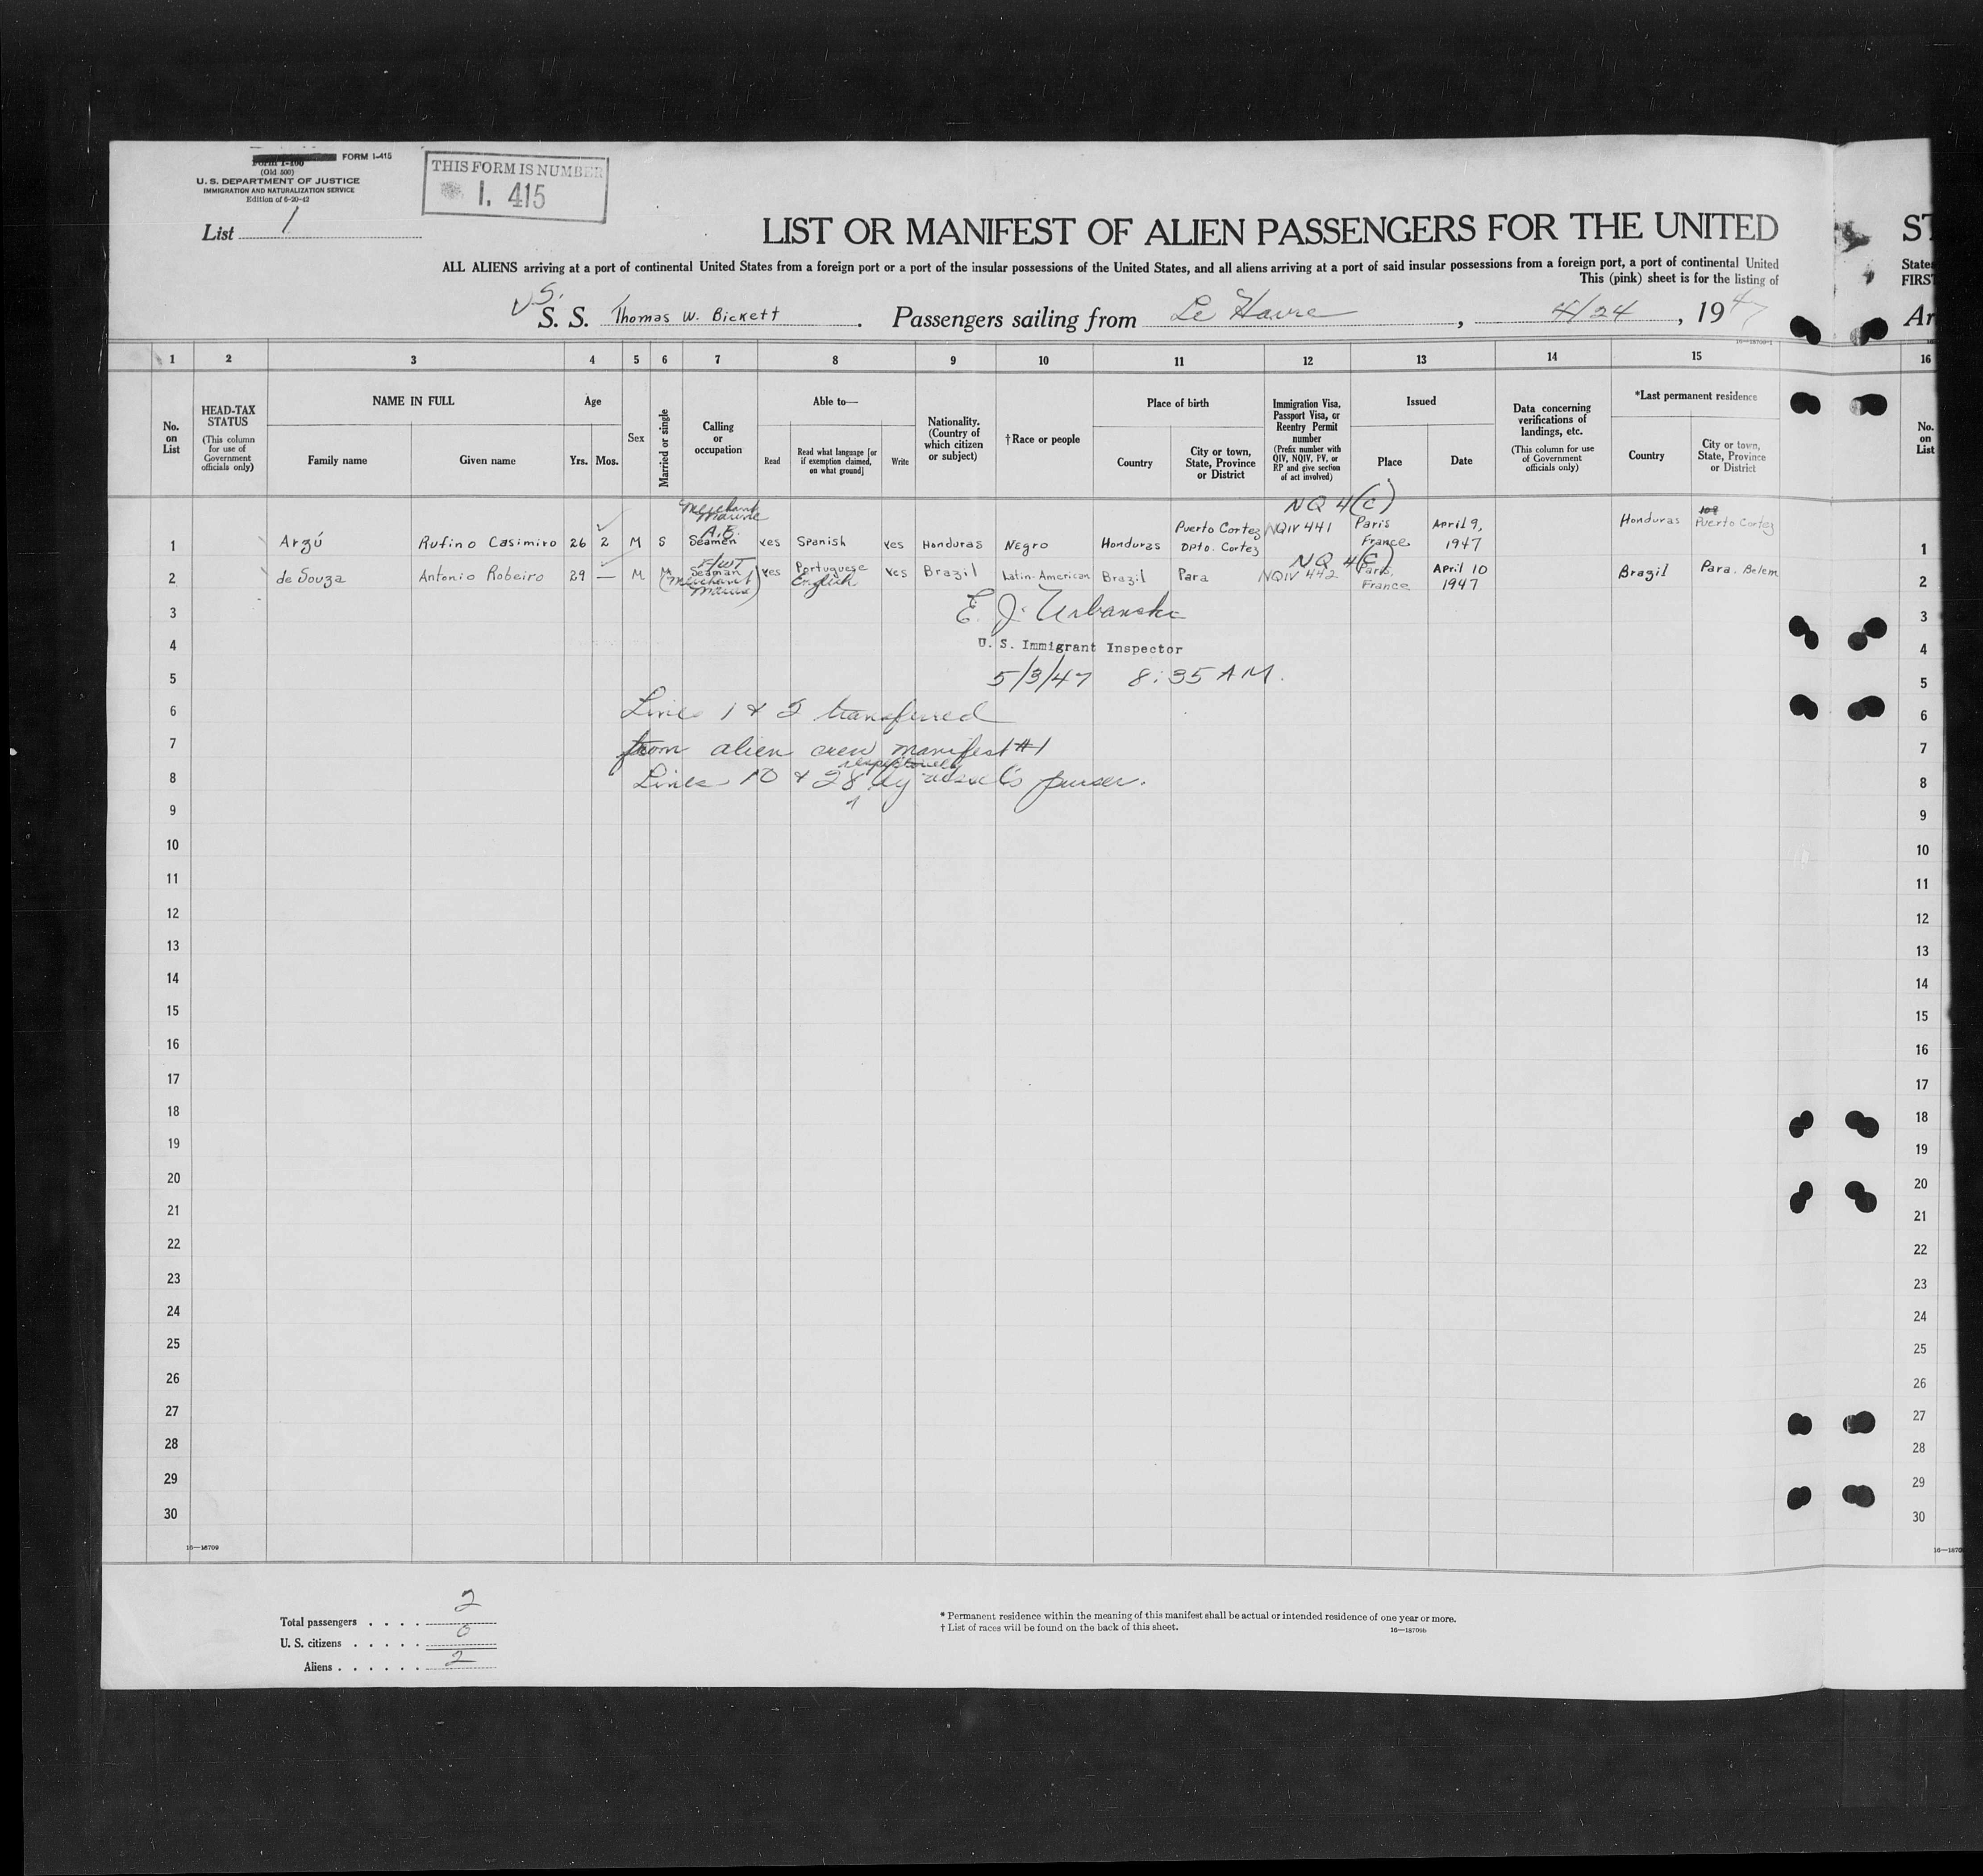 Form I-100 FORM I-415
(Old 500)
U. S. DEPARTMENT OF JUSTICE
IMMIGRATION AND NATURALIZATION SERVICE
Edition of 6-20-42
THIS FORM IS NUMBER
I. 415
List 1
LIST OR MANIFEST OF ALIEN PASSENGERS FOR THE UNITED
ST
ALL ALIENS arriving at a port of continental United States from a foreign port or a port of the insular possessions of the United States, and all aliens arriving at a port of said insular possessions from a foreign port, a port of continental United
States
This (pink) sheet is for the listing of
FIRST
S. S. Thomas W. Bickett. Passengers sailing from Le Havre, 4/24, 1947
Ar
16—18709-1
1 2 3 4 5 6 7 8 9 10 11 12 13 14 15 16
No. on List
HEAD-TAX STATUS
(This column for use of Government officials only)
NAME IN FULL
Family name
Given name
Age
Yrs. Mos.
Sex
Married or single
Calling or occupation
Able to—
Read
Read what language [or if exemption claimed, on what ground]
Write
Nationality. (Country of which citizen or subject)
†Race or people
Place of birth
Country
City or town, State, Province or District
Immigration Visa, Passport Visa, or Reentry Permit number
(Prefix number with QIV, NQIV, PV, or RP and give section of act involved)
Issued
Place
Date
Data concerning verifications of landings, etc.
(This column for use of Government officials only)
*Last permanent residence
Country
City or town, State, Province or District
No. on List
1 Arzú Rufino Casimiro 26 2 M S Merchant Marine A.B. Seamen yes Spanish yes Honduras Negro Honduras Puerto Cortez Dpto. Cortez NQ 4(c) NQIV 441 Paris France April 9, 1947 Honduras Puerto Cortez 1
2 de Souza Antonio Robeiro 29 — M M F/WT Seaman (Merchant Marine) yes Portuguese English yes Brazil Latin-American Brazil Para NQ 4(c) NQIV 442 Paris, France April 10 1947 Brazil Para. Belem 2
3 E. J. Urbanski 3
4 U. S. Immigrant Inspector 4
5 5/3/47 8:35 AM. 5
6 Lines 1 & 2 transferred 6
7 from alien crew manifest #1 7
respectively
8 Lines 10 & 28 by vessel's purser. 8
9 9
10 10
11 11
12 12
13 13
14 14
15 15
16 16
17 17
18 18
19 19
20 20
21 21
22 22
23 23
24 24
25 25
26 26
27 27
28 28
29 29
30 30
16—18709
16—1870
Total passengers . . . . 2
U. S. citizens . . . . . 0
Aliens . . . . . . 2
* Permanent residence within the meaning of this manifest shall be actual or intended residence of one year or more.
† List of races will be found on the back of this sheet.
16—18709b